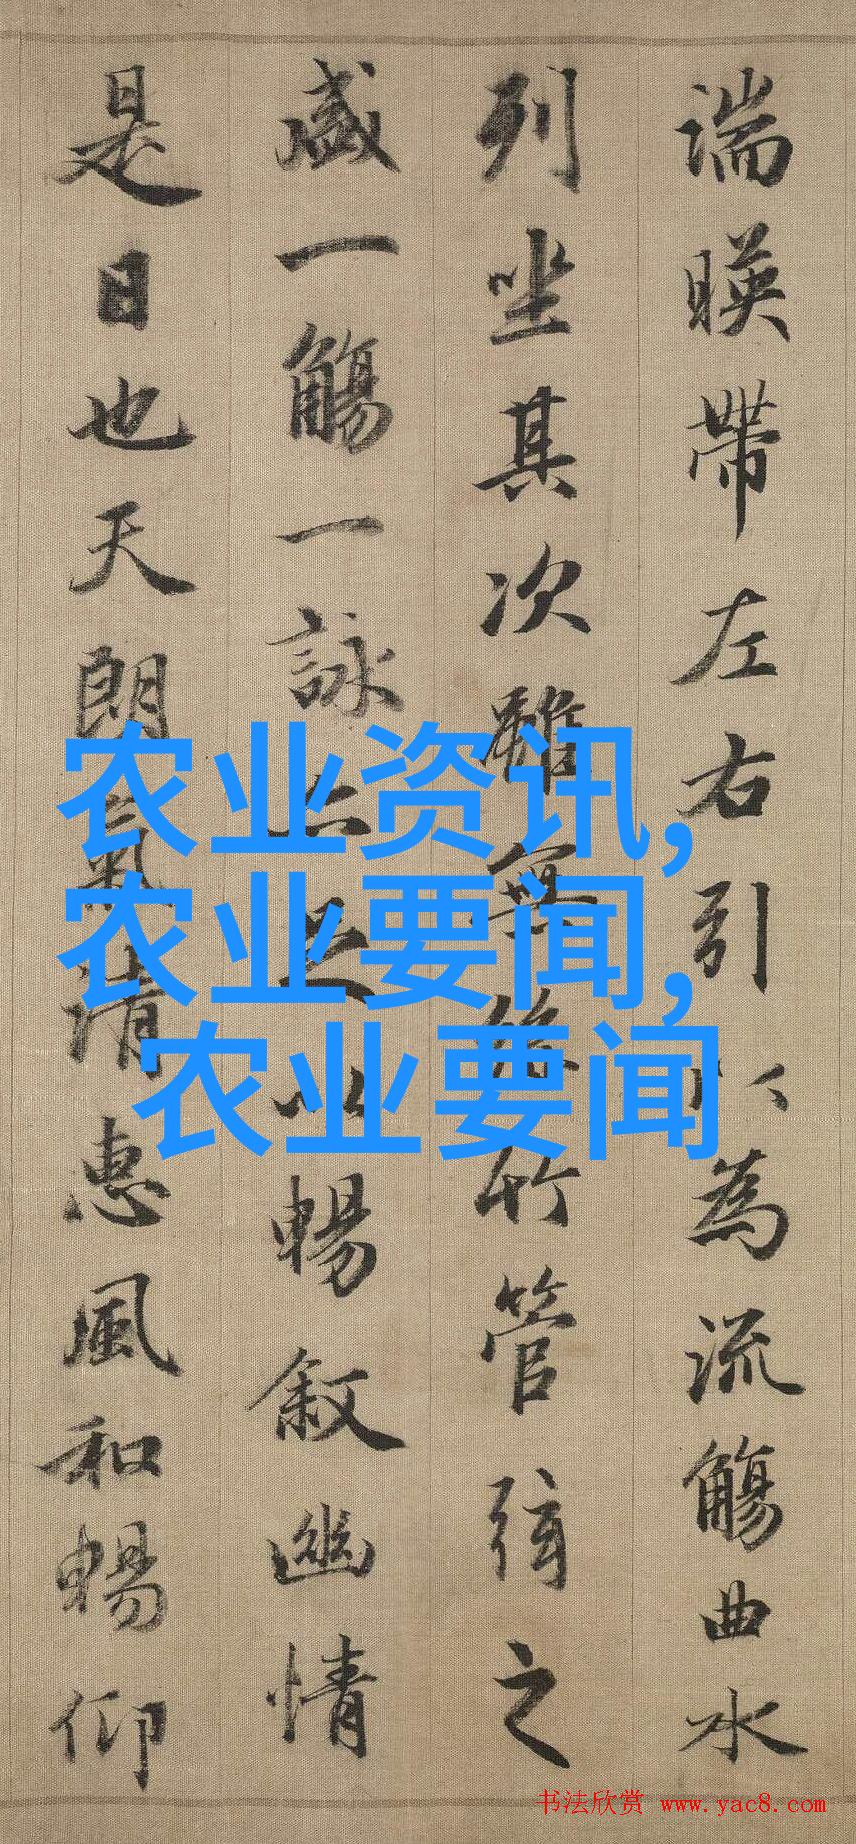 湍暎帶左右引以為流觴曲水
列坐其次雖無絲竹管弦之
盛一觴一詠亦足以暢叙幽情
是日也天朗氣清惠風和暢仰
农业资讯,
农业要闻,
农业要闻
书法欣赏 www.yac8.com